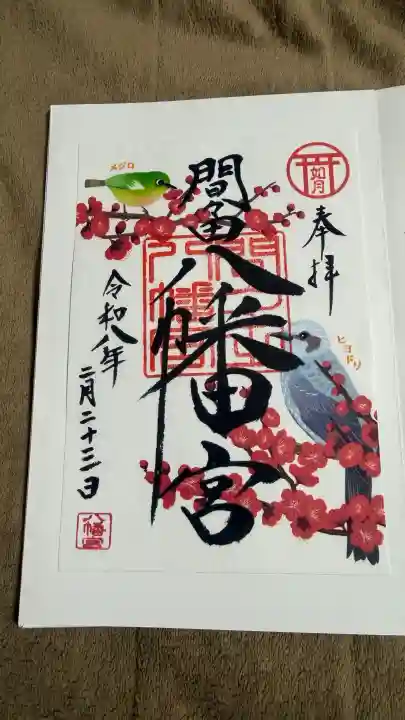 如月
奉拝
ヒヨドリ
間々田八幡宮
メジロ
令和八年
二月二十三日
八幡宮